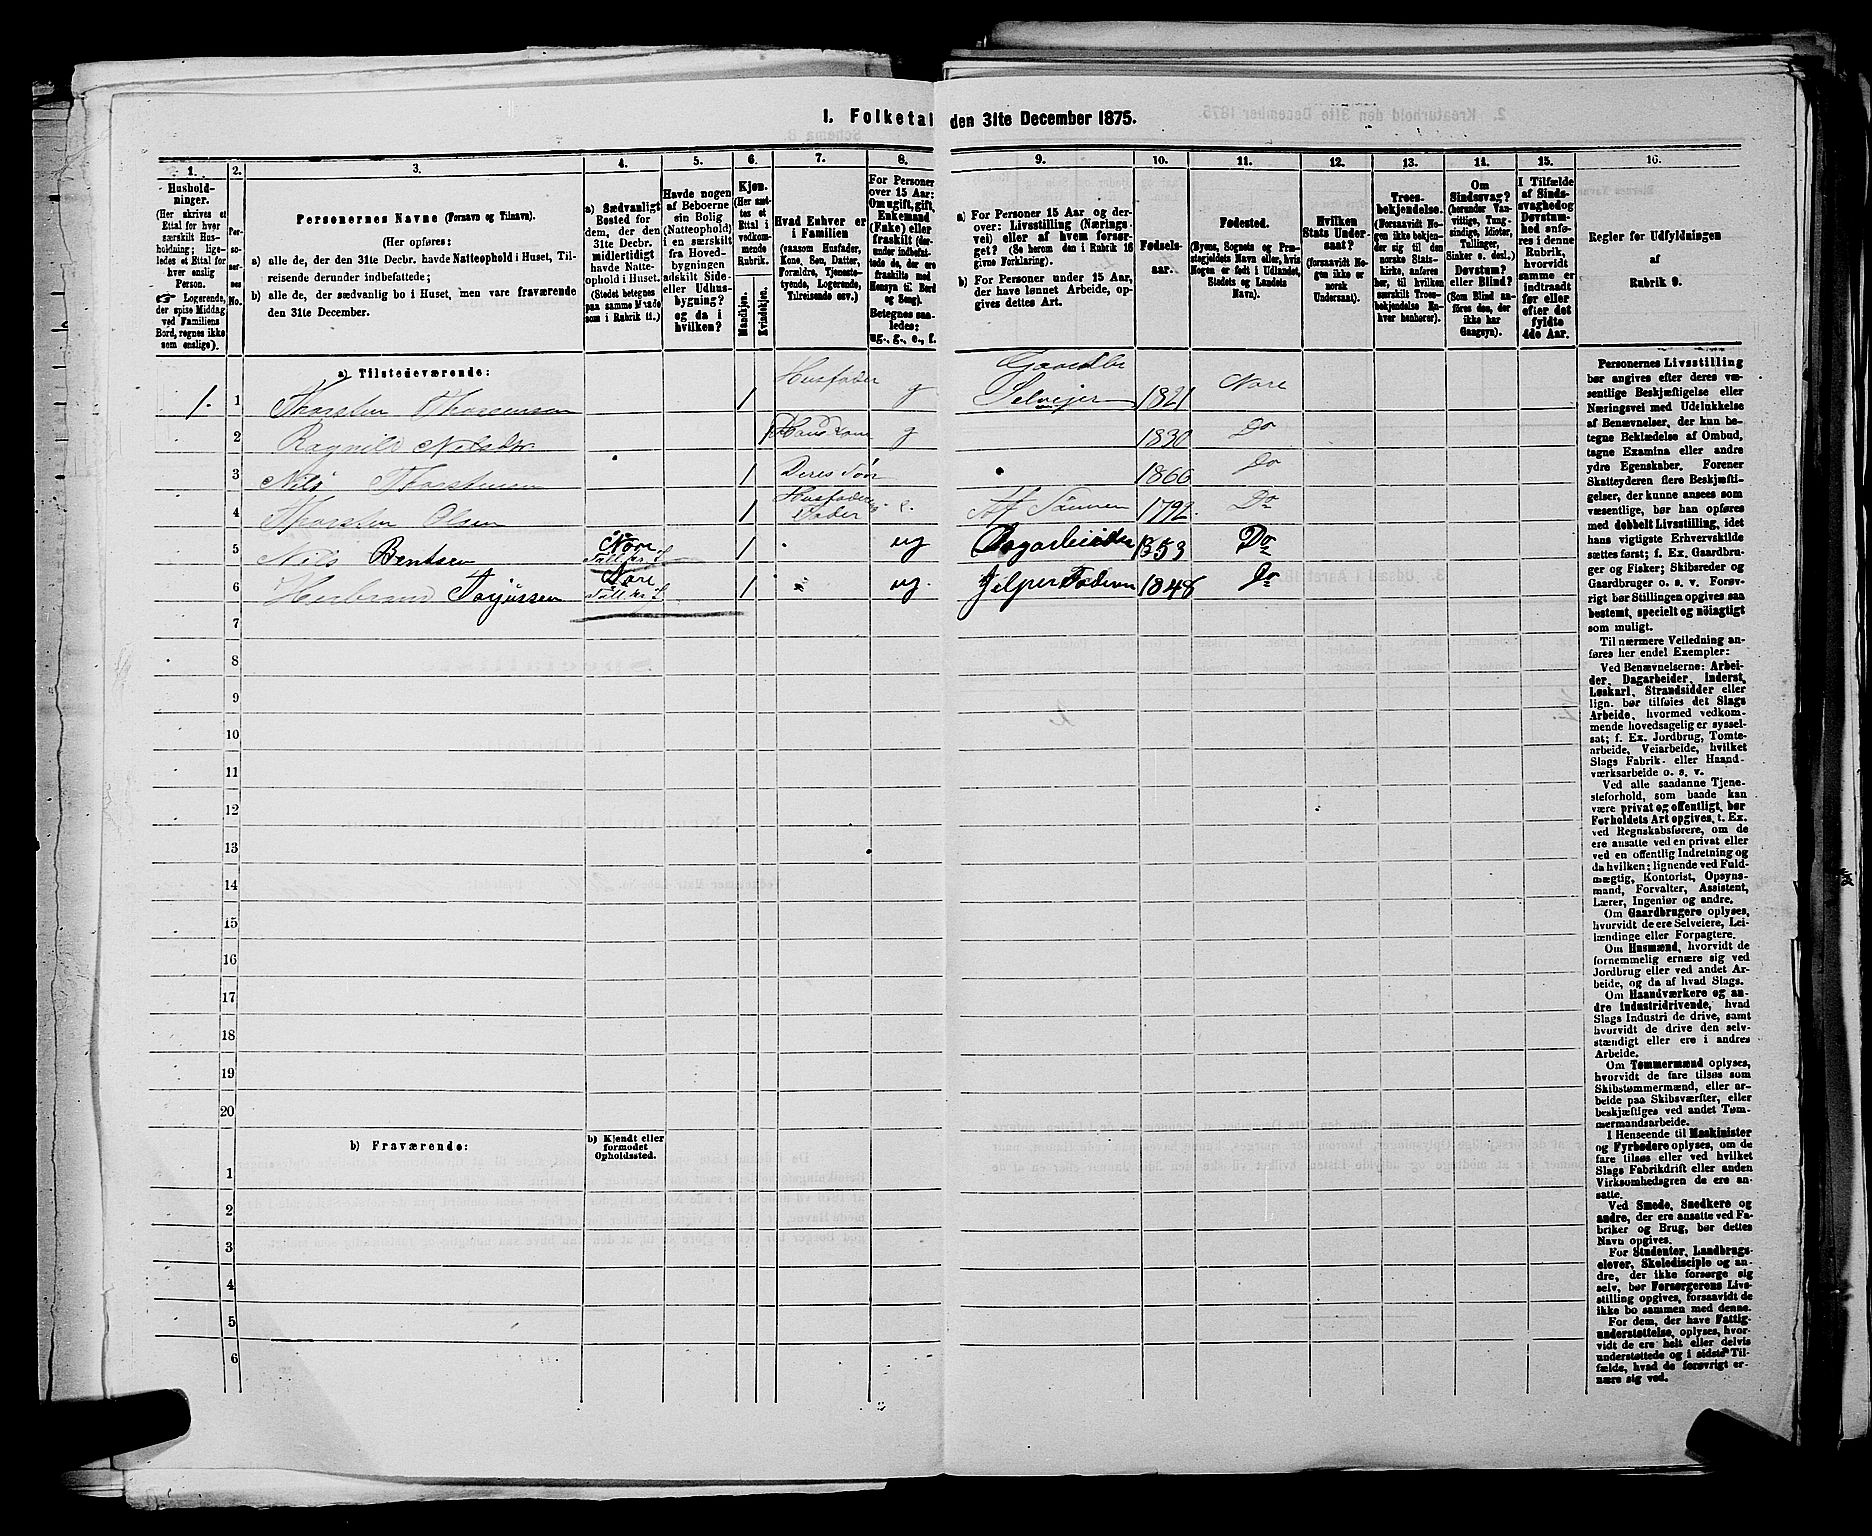 1. Folketal den 31te December 1875.
1.
Hushold-
ninger.
(Her skrives et
Ettal for hver
særskilt Hus-
holdning; lige-
ledes et Ettal for
hver enslig
Person.
☞ Logerende,
der spise Middag
ved Familiens
Bord, regnes ikke
som enslige).
2.
Per-
so-
ner-
nes
No.
3.
Personernes Navne (Fornavn og Tilnavn).
(Her opføres:
a) alle de, der den 31te Decbr. havde Natteophold i Huset, Til-
reisende derunder indbefattede;
b) alle de, der sædvanlig bo i Huset, men vare fraværende
den 31te December.
4.
a) Sædvanligt
Bosted for
dem, der den
31te Decbr.
midlertidigt
havde Natte-
ophold i Huset.
(Stedet betegnes
paa samme Maade
som i Rubrik 11.)
5.
Havde nogen
af Beboerne
sin Bolig
(Natteophold)
i en særskilt
fra Hoved-
bygningen
adskilt Side
eller Udhus-
bygning?
og da i
hvilken?
6.
Kjøn.
(Her sæt-
tes et
Ettal i
vedkom-
mende
Rubrik.
Mandkjøn.
Kvindekjøn.
7.
Hvad Enhver er
i Familien
(saasom Husfader,
Kone, Søn, Datter,
Forældre, Tjeneste-
tyende, Logerende,
Tilreisende osv.)
8.
For Personer
over 15 Aar:
Om ugift, gift,
Enkemand
(Enke) eller
fraskilt (der-
under indbefat-
tede de, der ere
fraskilte med
Hensyn til Bord
og Seng).
Betegnes saa-
ledes:
ug., g., e., f.
9.
a) For Personer 15 Aar og der-
over: Livsstilling (Nærings-
vei) eller af hvem forsør-
get? (Se herom den i Rubrik 16
givne Forklaring).
b) For Personer under 15 Aar,
der have lønnet Arbeide, op-
gives dettes Art.
10.
Fødsels-
aar.
11.
Fødested.
(Byens, Sognets og Præ-
stegjeldets Navn eller, hvis
Nogen er født i Udlandet,
Stedets og Landets
Navn).
12.
Hvilken
Stats Under-
saat?
(forsaavidt No-
gen ikke er
norsk
Undersaat).
13.
Troes-
bekjendelse.
(Forsaavidt No-
gen ikke bekjen-
der sig til den
norske Stats-
kirke, anføres
her, til hvilken
særskilt Troes-
bekjendelse En-
hver henhører).
14.
Om
Sindssvag?
(herunder Van-
vittige, Tung-
sindige, Idioter,
Tullinger,
Sinker o. desl.)
Døvstum?
eller Blind?
(Som Blind an-
føres den, der
ikke har
Gangsyn).
15.
I Tilfælde
af Sinds-
svaghed og
Døvstum-
hed anfø-
res i denne
Rubrik,
hvorvidt
samme er
indtraadt
før eller
efter det
fyldte
4de Aar.
16.
Regler for Udfyldningen
af
Rubrik 9.
a) Tilstedeværende:
1. 1 Thorsten Thorstensen 1 Husfader g Gaardbr Selvejer 1821 Nore
2 Ragnild Nilsdtr 1 Hans Kone g 1830 Do
3 Nils Thorstensen 1 Deres Søn 1866 Do
4 Thorsten Olsen 1 Husfaders Fader e. Af Sønnen 1792. Do
5 Nils Bentsen Nore 1 ug Dagarbeider 1853 Do
6 Herbrand Torjussen Nore 1 ug. Hjelper Faderen 1848 Do
7
8
9
10
11
12
13
14
15
16
17
18
19
20
b) Fraværende:
b) Kjendt eller
formodet
Opholdssted.
1
2
3
4
5
6
Personernes Livsstilling
bør angives efter deres væ-
sentlige Beskjæftigelse eller
Næringsvei med Udelukkelse
af Benævnelser, der kun be-
tegne Beklædelse af Ombud,
tagne Examina eller andre
ydre Egenskaber. Forener
Skatteyderen flere Beskjæfti-
gelser, der kunne ansees som
væsentlige, bør han opføres
med dobbelt Livsstilling, idet
hans vigtigste Erhvervskilde
sættes først; f. Ex. Gaardbru-
ger og Fisker; Skibsreder og
Gaardbruger o. s. v. Forøv-
rigt bør Stillingen opgives saa
bestemt, specielt og nøiagtigt
som muligt.
Til nærmere Veiledning an-
føres her endel Exempler:
Ved Benævnelserne: Arbei-
der, Dagarbeider, Inderst,
Løskarl, Strandsidder eller
lign. bør tilføies det Slags
Arbeide, hvormed vedkom-
mende hovedsagelig er syssel-
sat; f. Ex. Jordbrug, Tomte-
arbeide, Veiarbeide, hvilket
Slags Fabrik- eller Haand-
værksarbeide o. s. v.
Ved alle saadanne Tjene-
steforhold, som baade kan
være privat og offentligt, bør
Forholdets Art opgives, t. Ex.
ved Regnskabsførere, om de
ere ansatte ved en privat eller
ved en offentlig Indretning og
da hvilken; lignende ved Fuld-
mægtig, Kontorist, Opsyns-
mand, Forvalter, Assistent,
Lærer, Ingeniør og andre.
Om Gaardbrugere oplyses,
hvorvidt de ere Selveiere, Lei-
lændinge eller Forpagtere.
Om Husmænd, hvorvidt de
fornemmelig ernære sig ved
Jordbrug eller ved andet Ar-
beide, og da af hvad Slags.
Om Haandværkere og an-
dre industridrivende, hvad
Slags Industri de drive, samt
hvorvidt de drive den selv-
stændigt eller ere i andres
Arbeide.
Om Tømmermænd oplyses,
hvorvidt de fare tilsøs som
Skibstømmermænd, eller ar-
beide paa Skibsværfter, eller
beskjæftiges ved andet Tøm-
mermandsarbeide.
I Henseende til Maskinister
og Fyrbødere oplyses, om de
fare tilsøs eller ved hvilket
Slags Fabrikdrift eller anden
Virksomhedsgren de ere an-
satte.
Ved Smede, Snedkere og
andre, der ere ansatte ved Fa-
briker og Brug, bør dettes
Navn opgives.
For Studenter, Landbrugs-
elever, Skoledisciple og an-
dre, der ikke forsørge sig
selv, bør Forsørgerens Livs-
stilling opgives, forsaavidt de
ikke bo sammen med denne.
For dem, der have Fattig-
understøttelse, oplyses, hvor-
vidt de ere helt eller delvis
understøttede og i sidste Til-
fælde, hvad de forøvrigt er-
nære sig ved.